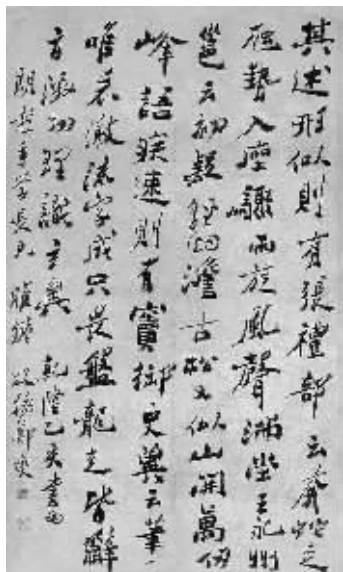 其述形似則有張禮部云奔蛇走
虺勢入座驟雨旋風聲滿坐王永州
邕云初疑輕烟澹古松又似山開萬仞
峰語疾速則有竇御史冀云筆下
唯看激流字成只畏盤龍走皆辭
旨激切理識玄奧 乾隆乙亥書為
年學長兄 雅鑒 板橋鄭燮